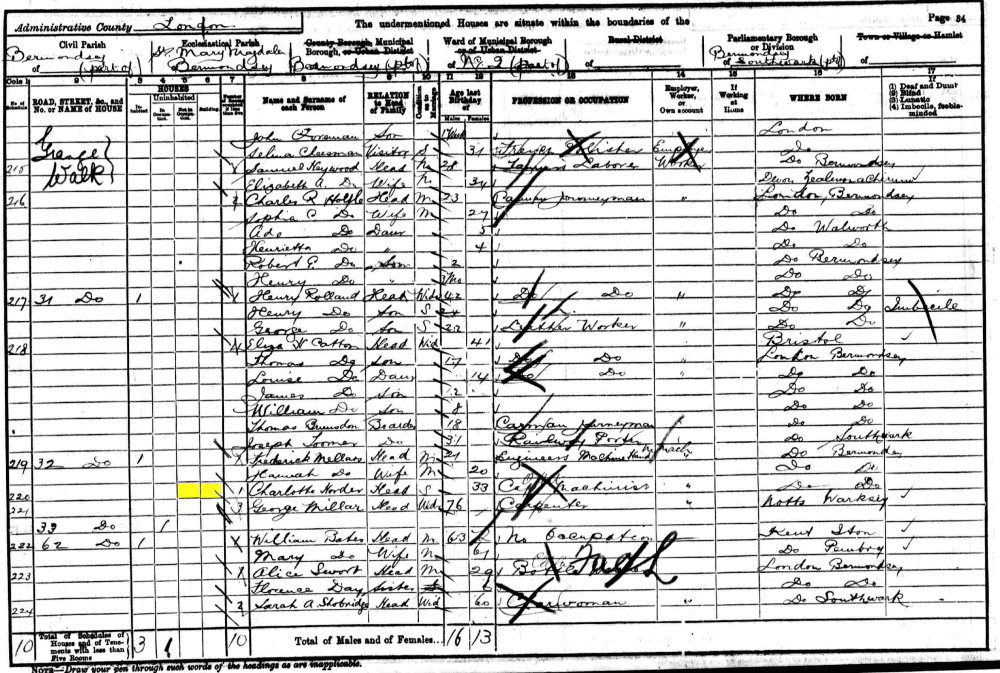 Administrative County London
The undermentioned Houses are situate within the boundaries of the
Page 34
Civil Parish
Ecclesiastical Parish
County Borough, Municipal Borough, or Urban District
Ward of Municipal Borough or of Urban District
Rural District
Parliamentary Borough or Division
Town or Village or Hamlet
of Bermondsey (part of)
St Mary Magdale Bermondsey
of Bermondsey (pt)
of No 2 (part of)
of
Bermondsey of Southwark (pt)
of
ROAD, STREET, &c., and No. or NAME of HOUSE
HOUSES
Inhabited
Uninhabited
In Occupation
Not in Occupation
Building
Name and Surname of each Person
RELATION to Head of Family
Condition as to Marriage
Age last Birthday of
Males
Females
PROFESSION OR OCCUPATION
Employer, Worker, or Own account
If Working at Home
WHERE BORN
If (1) Deaf and Dumb (2) Blind (3) Lunatic (4) Imbecile, feeble-minded
John Foreman Son 1 Week London
Grange Walk
Selina Cheesman Visitor S 31 Do
215 Samuel Heywood Head M 28 Laborer Worker Do Bermondsey
Elizabeth A. Do Wife M 34 Devon
216 2 Charles R Holple Head M 23 Journeyman " London Bermondsey
Sophia C Do Wife M 27 Do Do
Ada Do Daur 5 Do Walworth
Henrietta Do " 4 Do Do
Robert G. Do Son 2 Do Bermondsey
Henry Do " 1 Mo Do Do
217 31 Do 1 Henry Rolland Head Widr 42 Do Do " Do Do
Henry Do Son S 24 Do Do Imbecile
George Do Son S 22 Leather Worker " Do Do
218 4 Eliza W Catton Head Wid 41 Bristol
Thomas Do Son 17 Do Do " London Bermondsey
Louise Do Daur 14 Do Do " Do Do
James Do Son 12 Do Do
William Do Son 8 Do Do
Thomas Boarder 18 Carman Journeyman Do Do
Joseph Toomer Do 31 Railway Porter Do Southwark
219 32 Do 1 Frederick Mellars Head M 21 Engineers Machine Hand Do Bermondsey
Hannah Do Wife M 20 Do Do
220 1 Charlotte Horder Head S 33 Machinist " Do Do
221 3 George Millar Head Widr 76 Carpenter " Notts
33 Do 1
222 62 Do 1 William Bates Head M 63 No Occupation Kent
Mary Do Wife M 61 Do
223 Alice Head M 29 London Bermondsey
Florence Day Sister Do Do
224 2 Sarah A. Head Wid 60 Charwoman " Do Southwark
10 Total of Schedules of Houses and of Tenements with less than Five Rooms 3 1 10 Total of Males and of Females... 16 13
NOTE—Draw your pen through such words of the headings as are inapplicable.